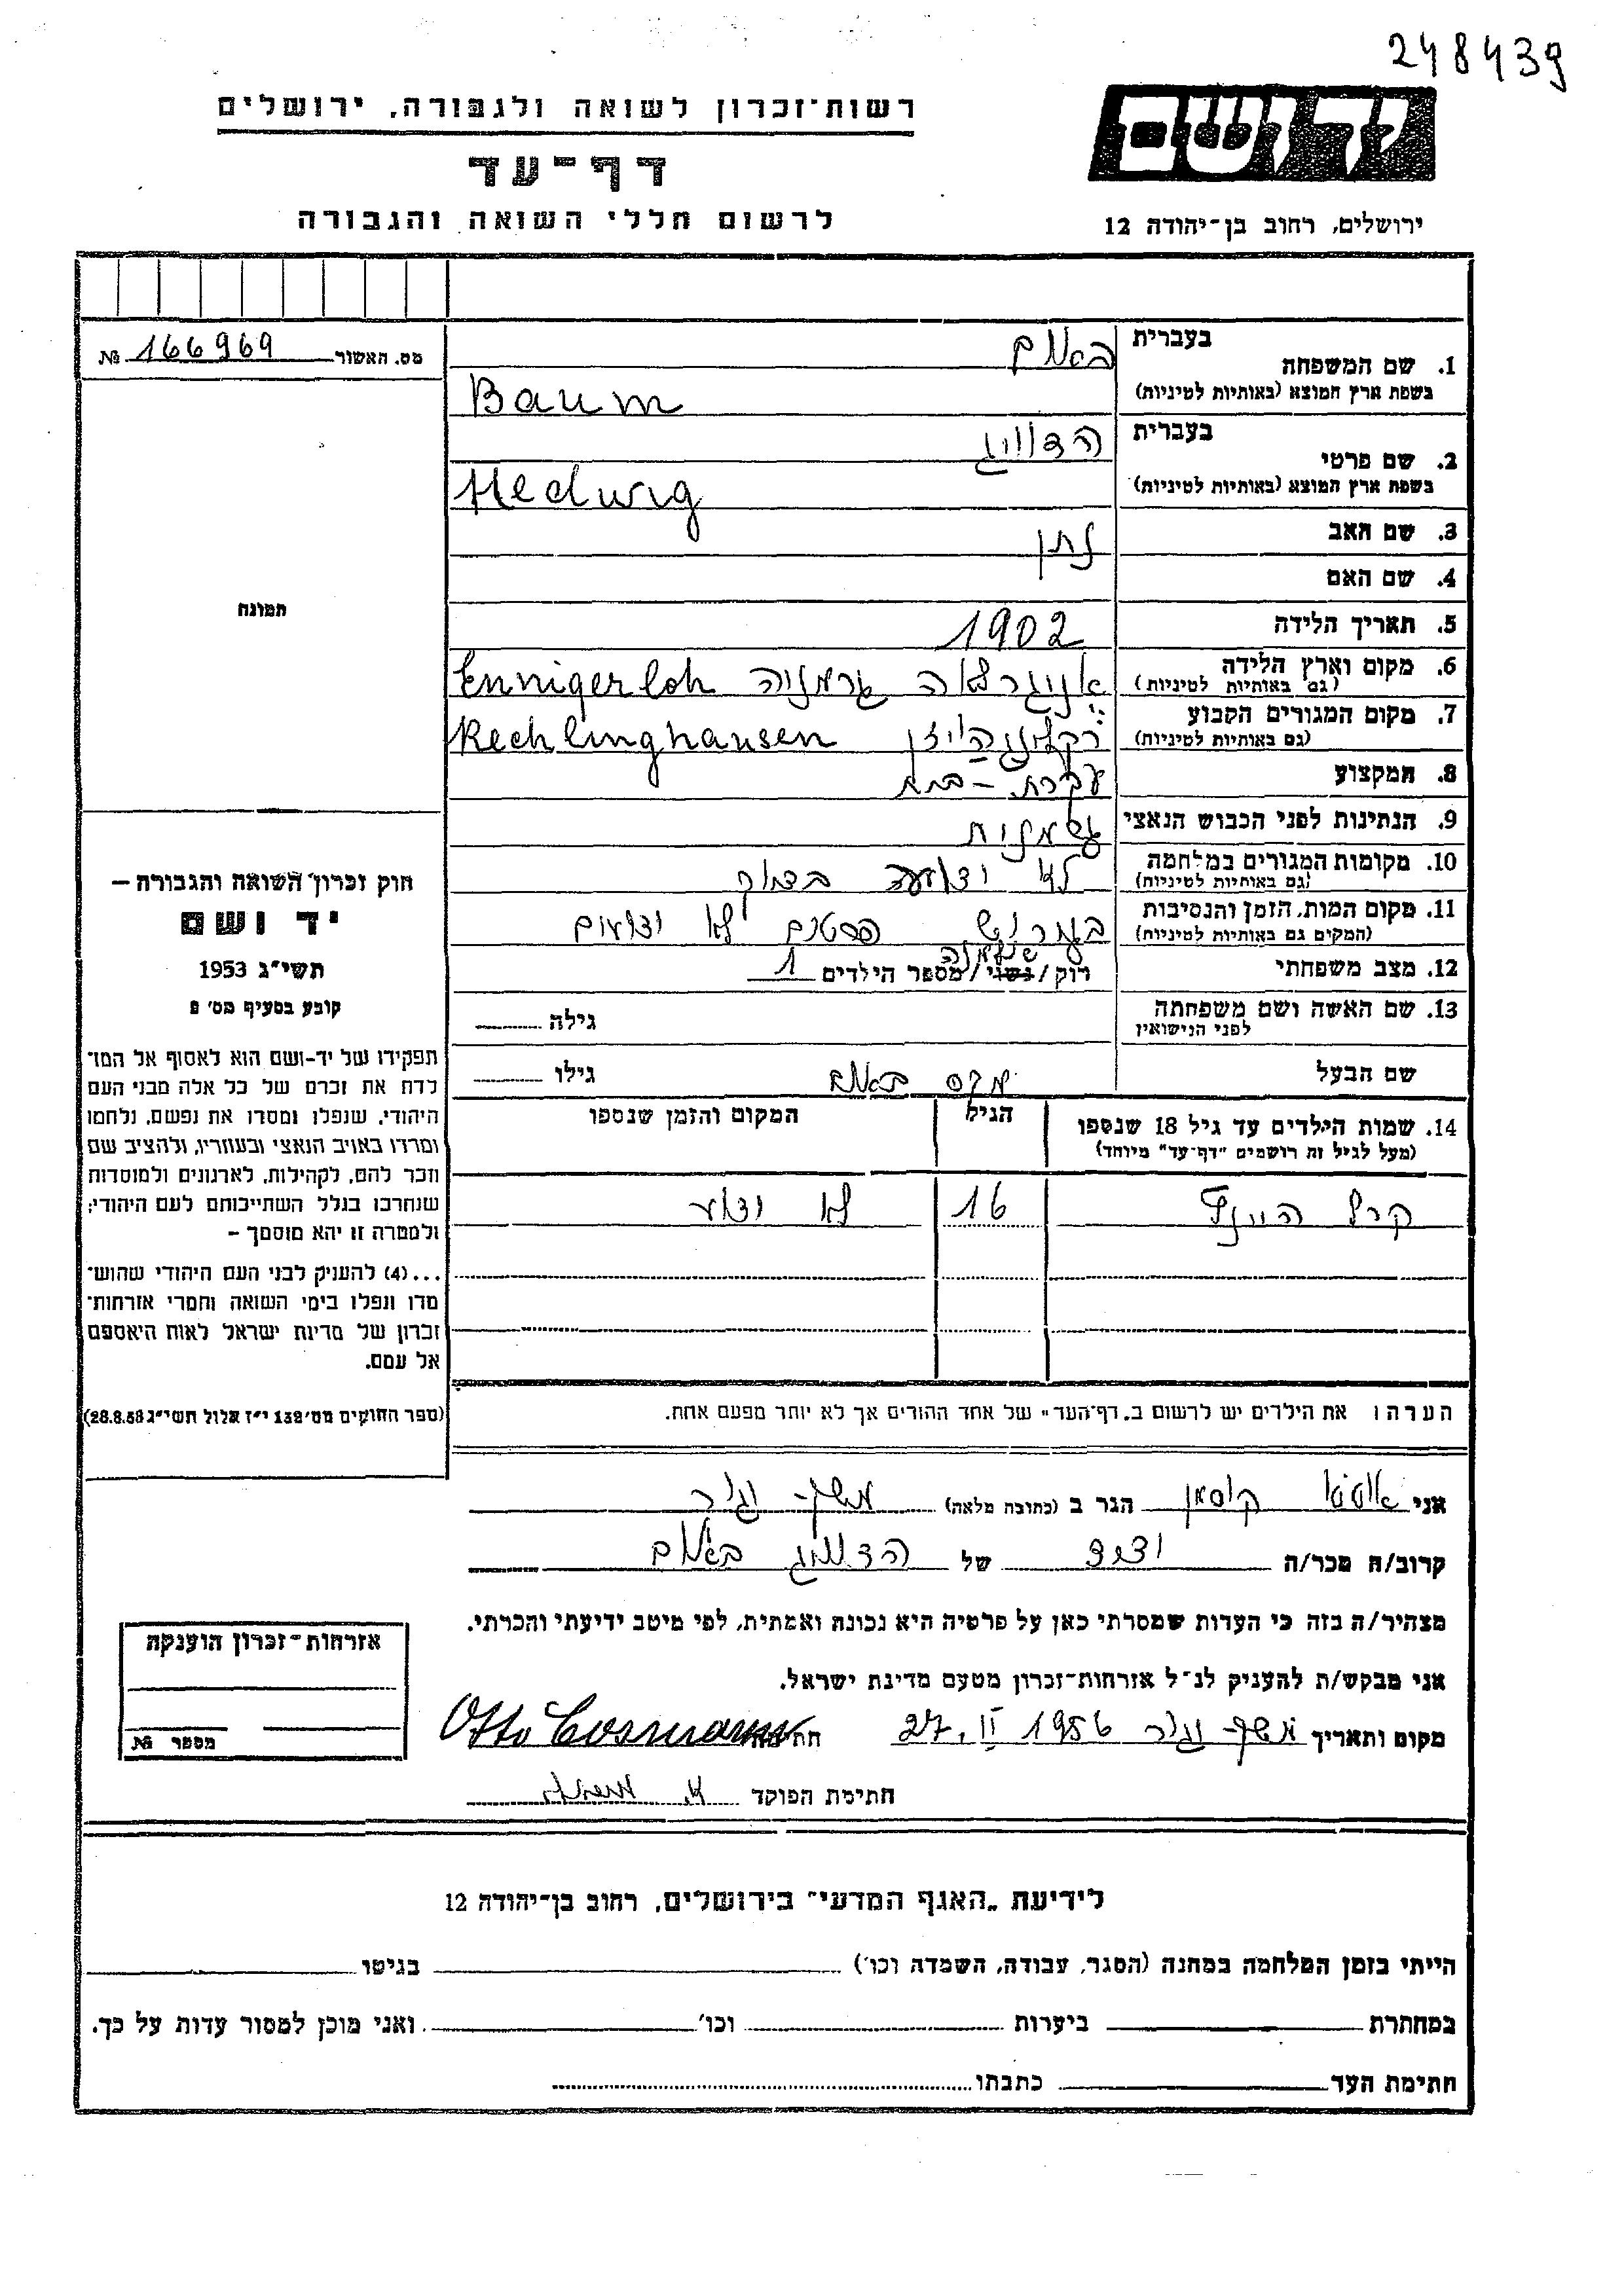 248439
יד ושם
רשות־זכרון לשואה ולגבורה, ירושלים
דף־עד
לרשום חללי השואה והגבורה
ירושלים, רחוב בן־יהודה 12
מס. האשור 166969 №
בעברית באום
1. שם המשפחה
בשפת ארץ המוצא (באותיות לטיניות) Baum
בעברית הדוויג
2. שם פרטי
בשפת ארץ המוצא (באותיות לטיניות) Hedwig
3. שם האב נתן
4. שם האם
5. תאריך הלידה 1902
6. מקום וארץ הלידה
(גם באותיות לטיניות) גרמניה Ennigerloh
7. מקום המגורים הקבוע
(גם באותיות לטיניות) Recklinghausen
8. המקצוע עקרת-בית
9. הנתינות לפני הכבוש הנאצי גרמנית
10. מקומות המגורים במלחמה
(גם באותיות לטיניות) לא ידוע
11. מקום המות, הזמן והנסיבות
(המקום גם באותיות לטיניות) פרטים לא ידועים
12. מצב משפחתי רוק/נשוי/מספר הילדים 1
נשואה
13. שם האשה ושם משפחתה
לפני הנישואין גילה
שם הבעל מקס באום גילו
14. שמות הילדים עד גיל 18 שנספו
(מעל לגיל זה רושמים "דף־עד" מיוחד)
הגיל
המקום והזמן שנספו
קרל היינץ 16 לא ידוע
הערה: את הילדים יש לרשום ב„דף־העד" של אחד ההורים אך לא יותר מפעם אחת.
תמונה
חוק זכרון השואה והגבורה —
יד ושם
תשי"ג 1953
קובע בסעיף מס׳ 2
תפקידו של יד-ושם הוא לאסוף אל המו־
לדת את זכרם של כל אלה מבני העם
היהודי, שנפלו ומסרו את נפשם, נלחמו
ומרדו באויב הנאצי ובעוזריו, ולהציב שם
וזכר להם, לקהילות, לארגונים ולמוסדות
שנחרבו בגלל השתייכותם לעם היהודי;
ולמטרה זו יהא מוסמך –
...(4) להעניק לבני העם היהודי שהוש־
מדו ונפלו בימי השואה והמרי אזרחות־
זכרון של מדינת ישראל לאות היאספם
אל עמם.
(ספר החוקים מס׳ 132 י"ז אלול תשי"ג 28.8.53)
אני אוטו קוסמן הגר ב (כתובת מלאה) משק-
קרוב/ה מכר/ה ידיד של הדוויג באום
מצהיר/ה בזה כי העדות שמסרתי כאן על פרטיה היא נכונה ואמתית, לפי מיטב ידיעתי והכרתי.
אני מבקש/ת להעניק לנ"ל אזרחות־זכרון מטעם מדינת ישראל.
מקום ותאריך משק- 27. II 1956 חתימה Otto Cosmann
חתימת הפוקד
אזרחות־זכרון הוענקה
מספר №
לידיעת „האגף המדעי" בירושלים, רחוב בן־יהודה 12
הייתי בזמן המלחמה במחנה (הסגר, עבודה, השמדה וכו׳) בגיטו
במחתרת ביערות וכו׳ ואני מוכן למסור עדות על כך.
חתימת העד כתבתו